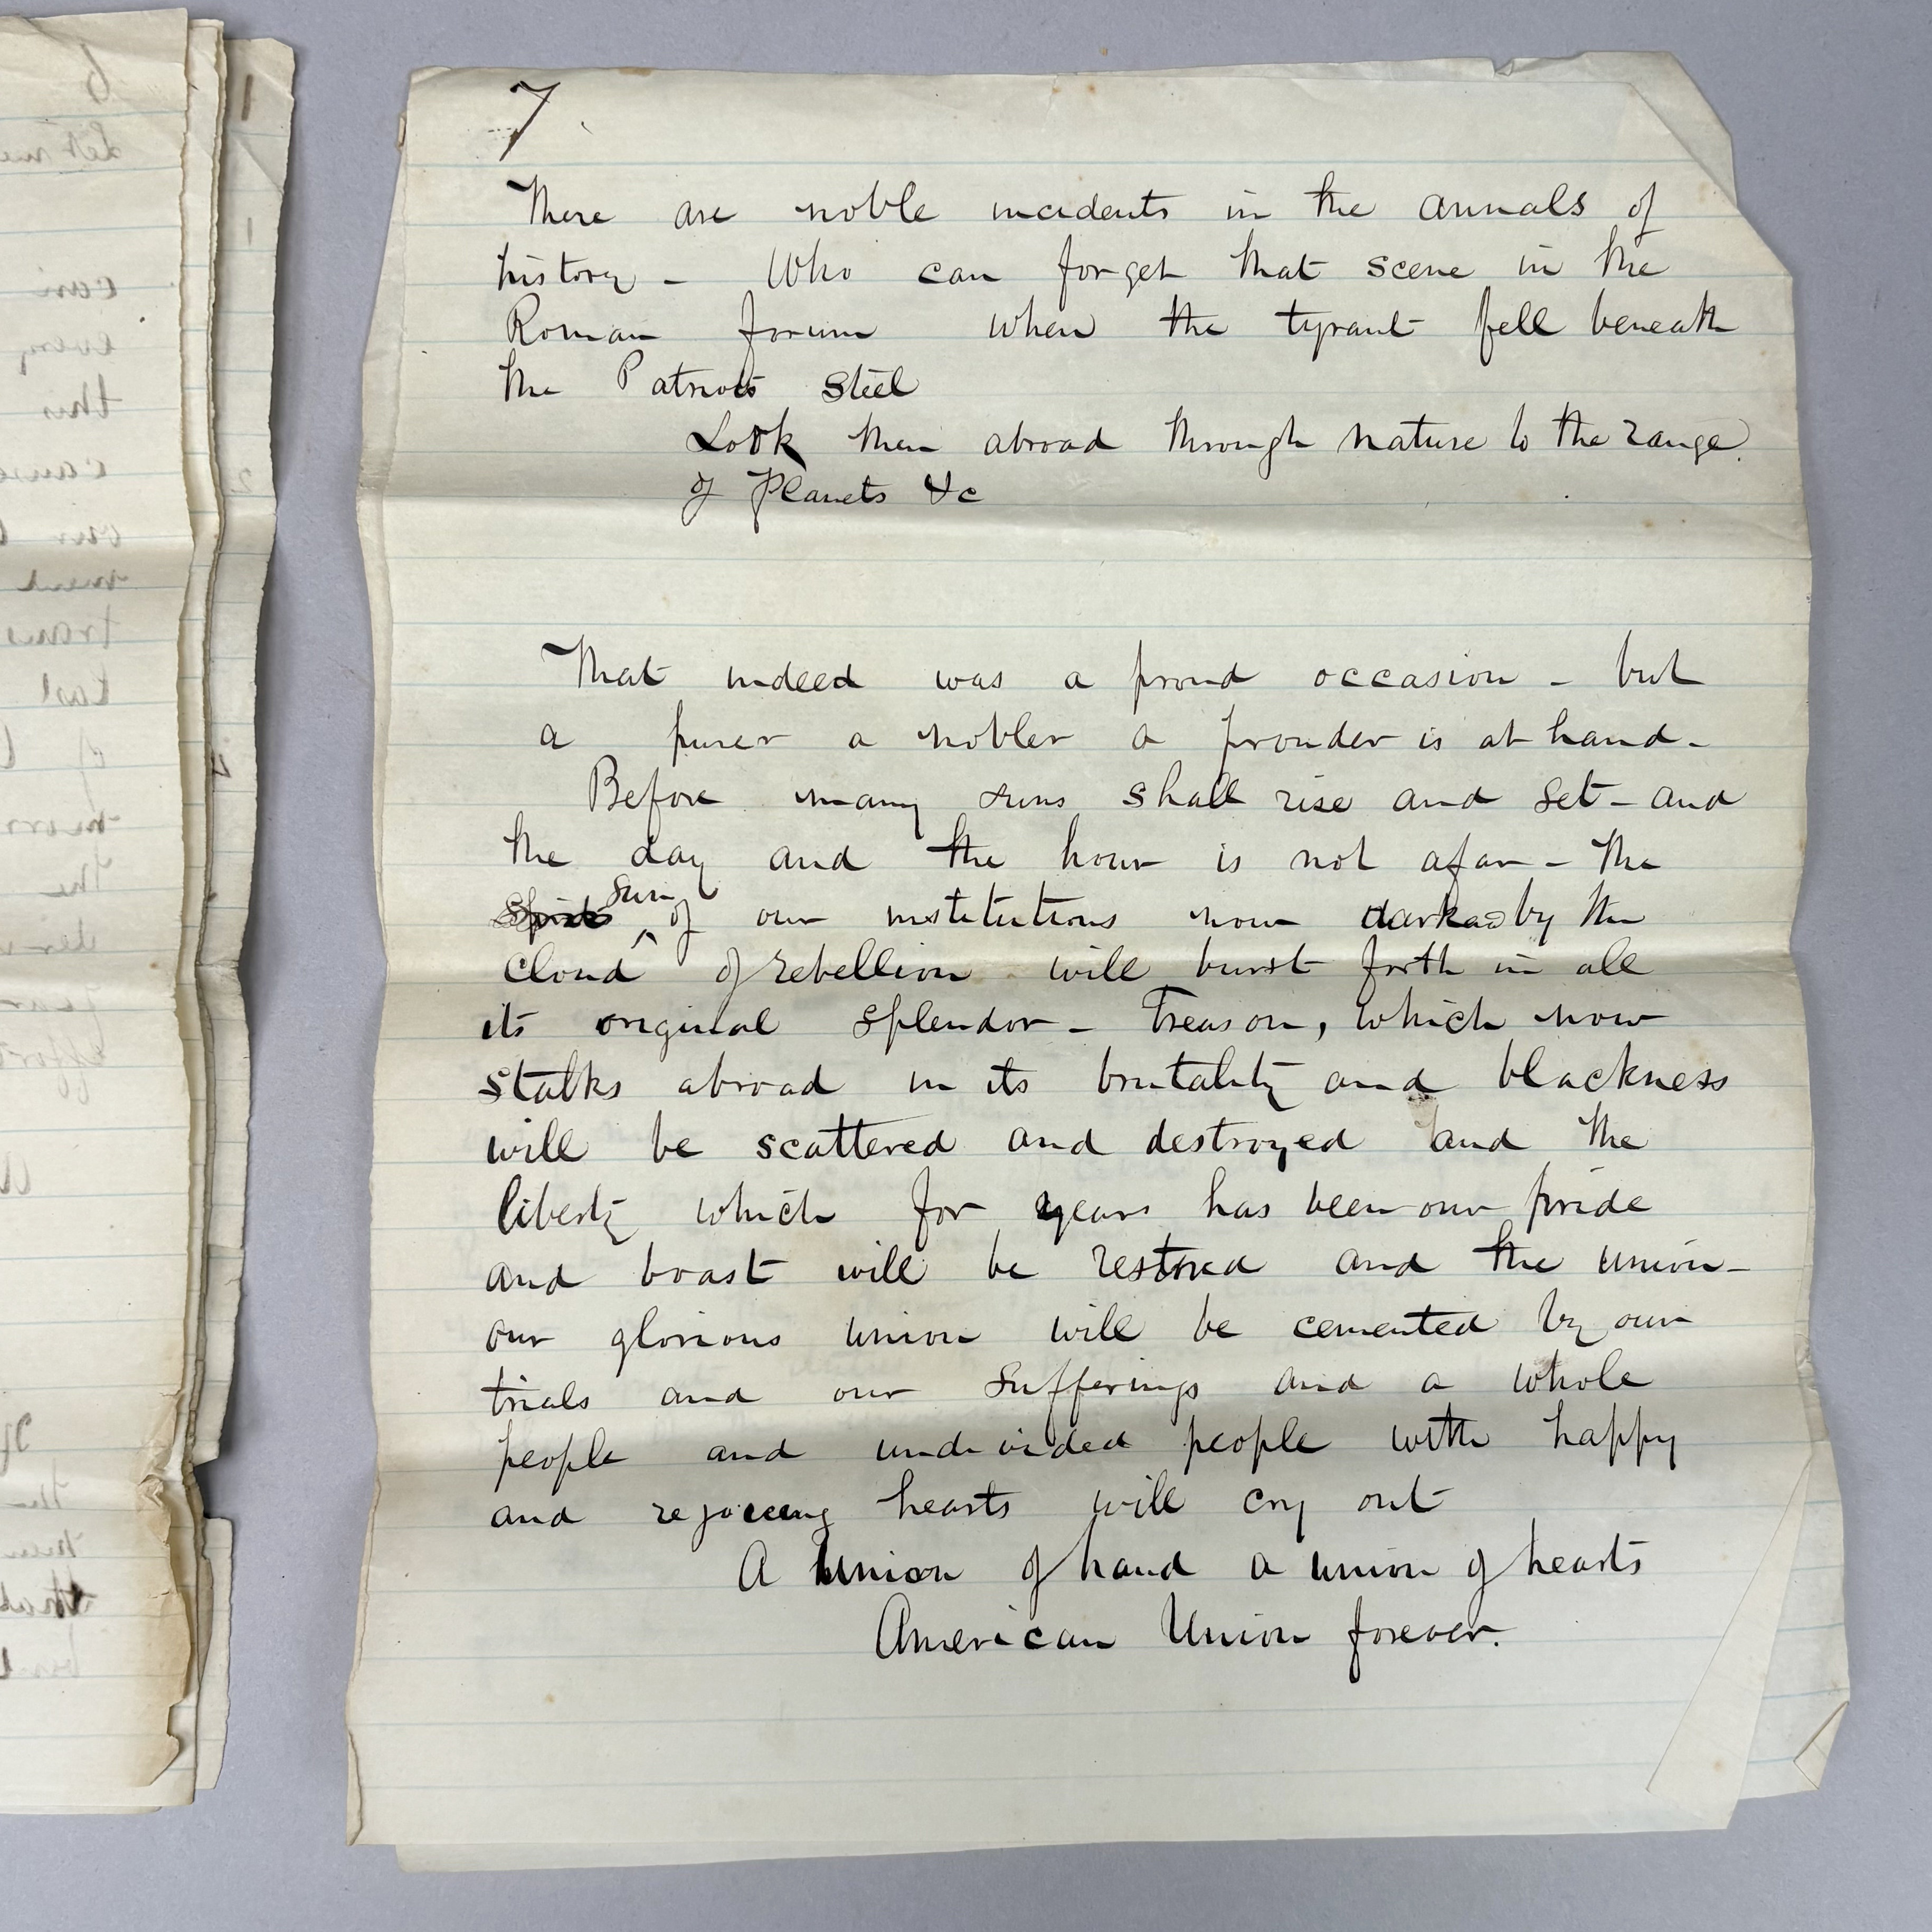 7
There are noble incidents in the annals of
history - Who can forget that scene in the
Roman forum when the tyrant fell beneath
the Patriots steel
Look then abroad through nature to the range
of Planets &c
That indeed was a proud occasion - but
a purer a nobler a prouder is at hand -
Before many suns shall rise and set - and
the day and the hour is not afar - the
sun
of our institutions now by the
cloud of rebellion will burst forth in all
its original splendor - Treason, which now
stalks abroad in its brutality and blackness
will be scattered and destroyed and the
liberty which for years has been our pride
and boast will be restored and the union -
our glorious union will be cemented by our
trials and our sufferings and a whole
people and undivided people with happy
and rejoicing hearts will cry out
A Union of hand a union of hearts
American Union forever.